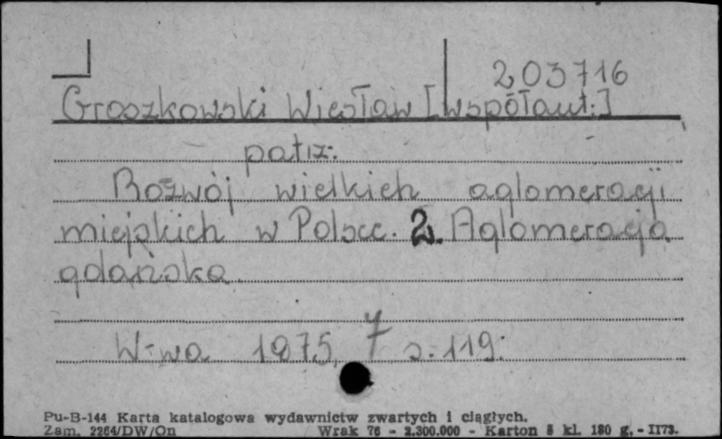 203716
Groszkowski Wiesław [współaut.]
patrz:
Rozwój wielkich aglomeracji
miejskich w Polsce. 2. Aglomeracja
gdańska
W-wa 1975, s. 119.
Pu-B-144 Karta katalogowa wydawnictw zwartych i ciągłych.
Zam. 2264/DW/On Wrak 76 - 2.300.000 - Karton 8 kl. 180 g. - II73.